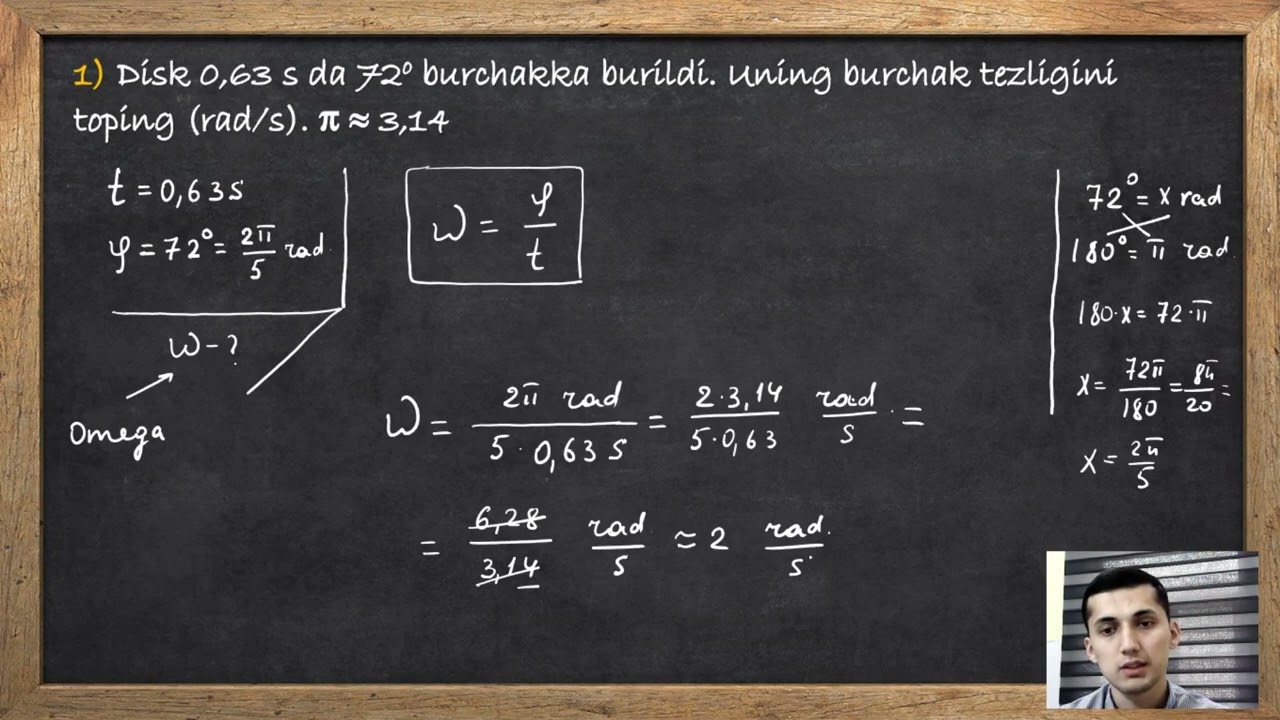 1) Disk 0,63 s da 72⁰ burchakka burildi. Uning burchak tezligini
toping (rad/s). π ≈ 3,14
t = 0,63s
φ = 72° = 2π/5 rad
ω - ?
Omega
ω = φ/t
ω = 2π rad / 5·0,63 s = 2·3,14 / 5·0,63 rad/s =
= 6,28/3,14 rad/s ≈ 2 rad/s
72° = x rad
180° = π rad
180·x = 72·π
x = 72π/180 = 8π/20 =
x = 2π/5